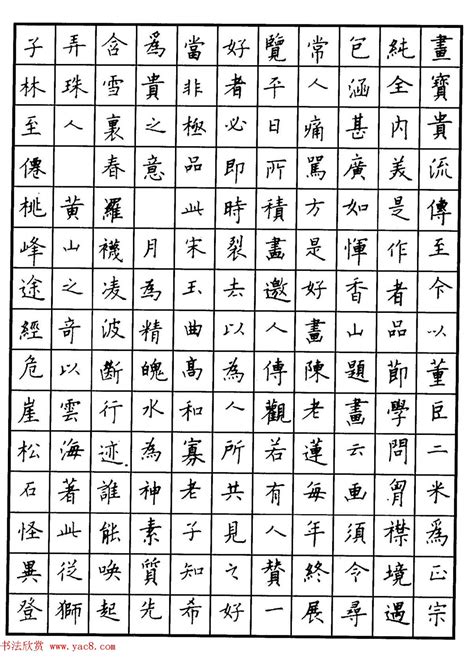 畫寶貴流傳至今以董巨二米為正宗
純全內美是作者品節學問胷襟境遇
包涵甚廣如惲香山題畫云画須令尋
常人痛罵方是好畫陳老蓮每年終展
覽平日所積畫邀人傳觀若有人贊一
好者必即時裂去以為人所共見之好
當非極品此宋玉曲高和寡老子知希
為貴之意 月為精魄水為神素質先
含雪裏春羅襪凌波斷行迹.誰能喚起
弄珠人 黃山之奇以雲海著此從獅
子林至傳桃峰途經危崖松石怪異登
书法欣赏 www.yac8.com